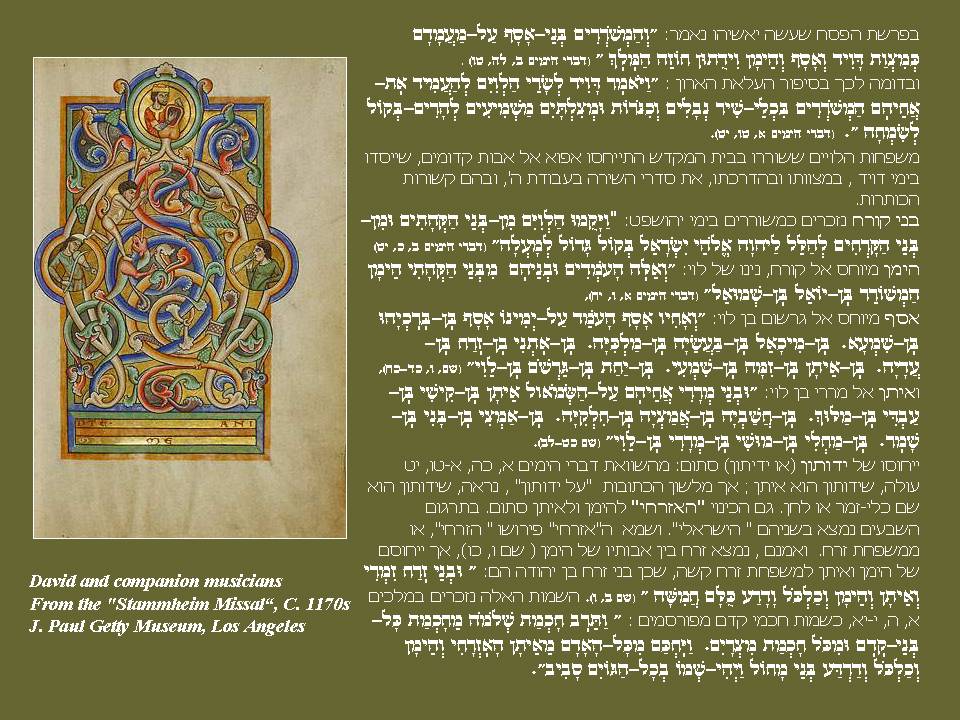 בפרשת הפסח שעשה יאשיהו נאמר: "וְהַמְשֹׁרְרִים בְּנֵי-אָסָף עַל-מַעֲמָדָם
כְּמִצְוַת דָּוִיד וְאָסָף וְהֵימָן וִידֻתוּן חוֹזֵה הַמֶּלֶךְ" (דברי הימים ב, לה, טו).
ובדומה לכך בסיפור העלאת הארון: "וַיֹּאמֶר דָּוִיד לְשָׂרֵי הַלְוִיִּם לְהַעֲמִיד אֶת-
אֲחֵיהֶם הַמְשֹׁרְרִים בִּכְלֵי-שִׁיר נְבָלִים וְכִנֹּרוֹת וּמְצִלְתָּיִם מַשְׁמִיעִים לְהָרִים-בְּקוֹל
לְשִׂמְחָה". (דברי הימים א, טו, יט).
משפחות הלויים ששוררו בבית המקדש התייחסו אפוא אל אבות קדומים, שייסדו
בימי דויד, במצוותו ובהדרכתו, את סדרי השירה בעבודת ה', ובהם קשורות
הכותרות.
בני קורח נזכרים כמשוררים בימי יהושפט: "וַיָּקֻמוּ הַלְוִיִּם מִן-בְּנֵי הַקְּהָתִים וּמִן-
בְּנֵי הַקָּרְחִים לְהַלֵּל לַיהוָה אֱלֹהֵי יִשְׂרָאֵל בְּקוֹל גָּדוֹל לְמָעְלָה" (דברי הימים ב, כ, יט)
הימן מיוחס אל קורח, נינו של לוי: "וְאֵלֶּה הָעֹמְדִים וּבְנֵיהֶם מִבְּנֵי הַקְּהָתִי הֵימָן
הַמְשׁוֹרֵר בֶּן-יוֹאֵל בֶּן-שְׁמוּאֵל" (דברי הימים א, ו, יח).
אסף מיוחס אל גרשום בן לוי: "וְאָחִיו אָסָף הָעֹמֵד עַל-יְמִינוֹ אָסָף בֶּן-בֶּרֶכְיָהוּ
בֶּן-שִׁמְעָא. בֶּן-מִיכָאֵל בֶּן-בַּעֲשֵׂיָה בֶּן-מַלְכִּיָּה. בֶּן-אֶתְנִי בֶן-זֶרַח בֶּן-
עֲדָיָה. בֶּן-אֵיתָן בֶּן-זִמָּה בֶּן-שִׁמְעִי. בֶּן-יַחַת בֶּן-גֵּרְשֹׁם בֶּן-לֵוִי" (שם, ו, כד-כח),
ואיתן אל מררי בן לוי: "וּבְנֵי מְרָרִי אֲחֵיהֶם עַל-הַשְּׂמֹאול אֵיתָן בֶּן-קִישִׁי בֶּן-
עַבְדִּי בֶּן-מַלּוּךְ. בֶּן-חֲשַׁבְיָה בֶן-אֲמַצְיָה בֶּן-חִלְקִיָּה. בֶּן-אַמְצִי בֶן-בָּנִי בֶּן-
שָׁמֶר. בֶּן-מַחְלִי בֶּן-מוּשִׁי בֶּן-מְרָרִי בֶּן-לֵוִי" (שם כט-לב).
ייחוסו של ידותון (או ידיתון) סתום: מהשוואת דברי הימים א, כה, א-טו, יט
עולה, שידותון הוא איתן; אך מלשון הכתובות "על ידותון", נראה, שידותון הוא
שם כלי-זמר או לחן. גם הכינוי "האזרחי" להימן ולאיתן סתום. בתרגום
השבעים נמצא בשניהם "הישראלי". ושמא ה"אזרחי" פירושו "הזרחי", או
ממשפחת זרח. ואמנם, נמצא זרח בין אבותיו של הימן (שם ו, כו), אך ייחוסם
של הימן ואיתן למשפחת זרח קשה, שכן בני זרח בן יהודה הם: "וּבְנֵי זֶרַח זִמְרִי
וְאֵיתָן וְהֵימָן וְכַלְכֹּל וָדָרַע כֻּלָּם חֲמִשָּׁה" (שם ב, ו). השמות האלה נזכרים במלכים
א, ה, י-יא, כשמות חכמי קדם מפורסמים: "וַתֵּרֶב חָכְמַת שְׁלֹמֹה מֵחָכְמַת כָּל-
בְּנֵי-קֶדֶם וּמִכֹּל חָכְמַת מִצְרָיִם. וַיֶּחְכַּם מִכָּל-הָאָדָם מֵאֵיתָן הָאֶזְרָחִי וְהֵימָן
וְכַלְכֹּל וְדַרְדַּע בְּנֵי מָחוֹל וַיְהִי-שְׁמוֹ בְכָל-הַגּוֹיִם סָבִיב".
David and companion musicians
From the "Stammheim Missal“, C. 1170s
J. Paul Getty Museum, Los Angeles